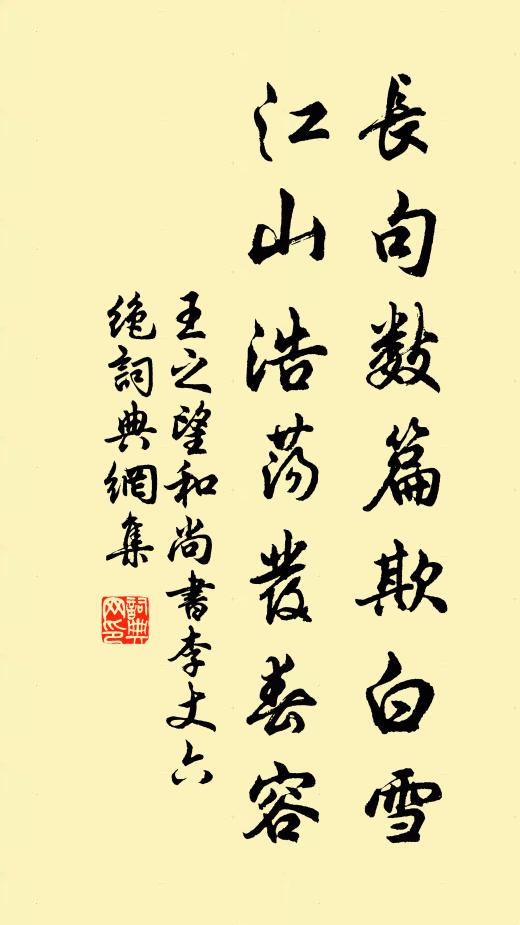 長句数篇欺白雪
江山浩荡發春容
王之望和尚書李丈六
絶詞典網集
詞典
网印